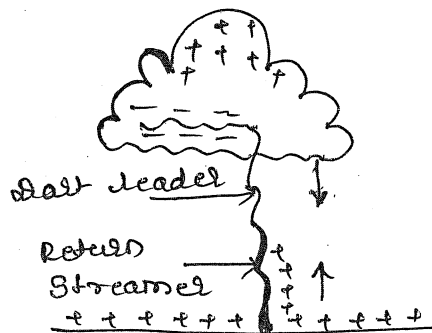 Dart leader
Return
Streamer